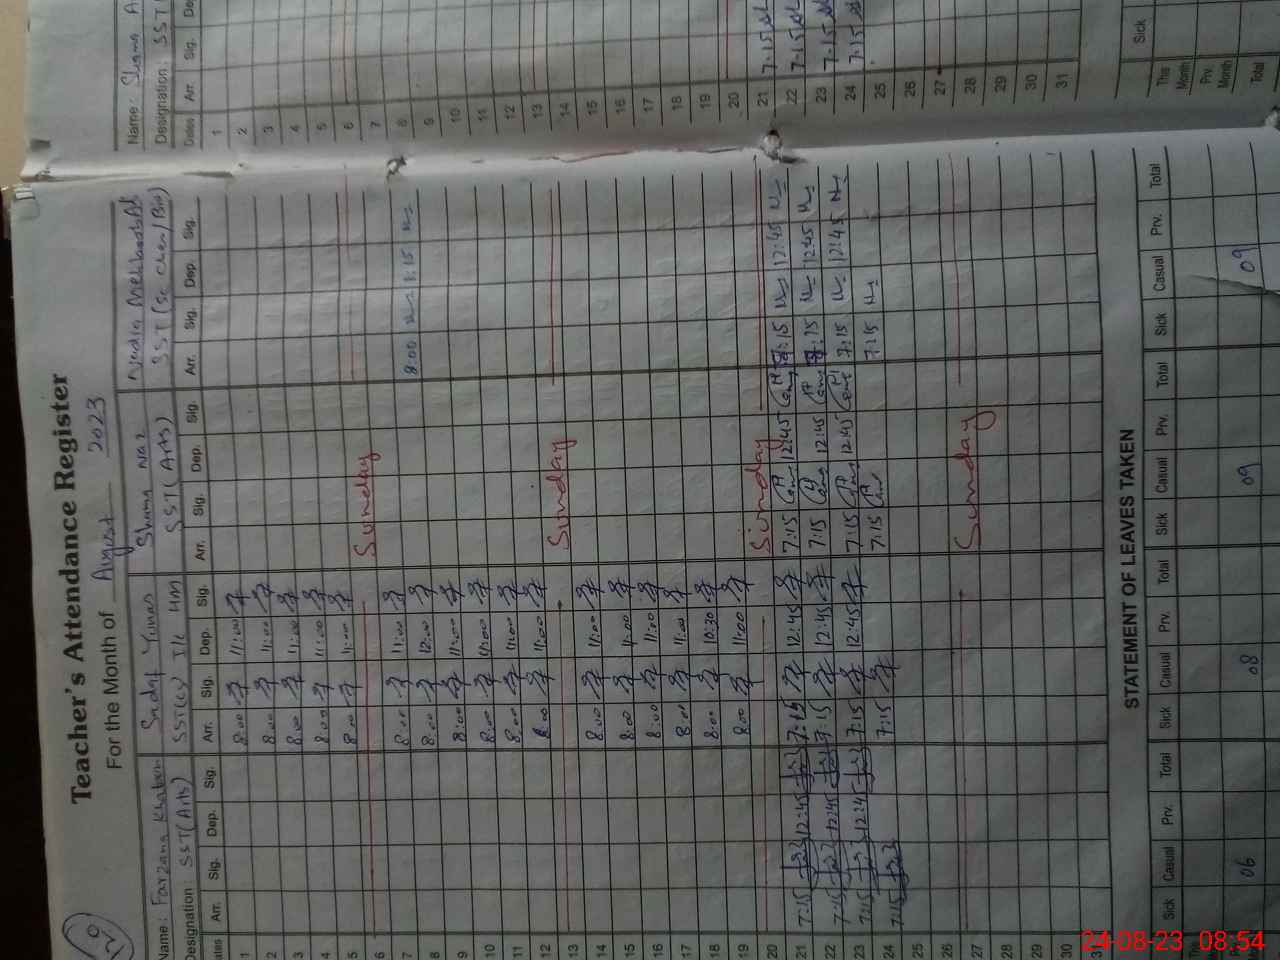 Teacher's Attendance Register
For the Month of August 2023
Name: Farzana Khatoon Sadaf Yunas Shama Naz Nadia Mehboob
Designation: SST (Arts) SST (G) I/C HM SST (Arts) SST (Sc Chem/Bio)
Dates Arr. Sig. Dep. Sig. Arr. Sig. Dep. Sig. Arr. Sig. Dep. Sig. Arr. Sig. Dep. Sig.
1 8:00 11:00
2 8:00 11:00
3 8:00 11:00
4 8:00 11:00
5 8:00 11:00
6 Sunday
7 8:00 11:00
8 8:00 12:00 8:00 1:15
9 8:00 11:00
10 8:00 11:00
11 8:00 11:00
12 8:00 11:00
13 Sunday
14 8:00 11:00
15 8:00 11:00
16 8:00 11:00
17 8:00 11:00
18 8:00 10:30
19 8:00 11:00
20 Sunday
21 7:15 12:45 7:15 12:45 7:15 12:45 7:15 12:45
22 7:15 12:45 7:15 12:45 7:15 12:45 7:15 12:45
23 7:15 12:45 7:15 12:45 7:15 12:45 7:15 12:45
24 7:15 7:15 7:15 7:15
25
26
27 Sunday
28
29
30
31
STATEMENT OF LEAVES TAKEN
Sick Casual Prv. Total Sick Casual Prv. Total Sick Casual Prv. Total Sick Casual Prv. Total
06 08 09 09
Name: Shama
Designation: SST
Dates Arr. Sig.
1
2
3
4
5
6
7
8
9
10
11
12
13
14
15
16
17
18
19
20
21 7:15
22 7:15
23 7:15
24 7:15
25
26
27
28
29
30
31
Sick
This Month
Prv. Month
Total
24-08-23 08:54